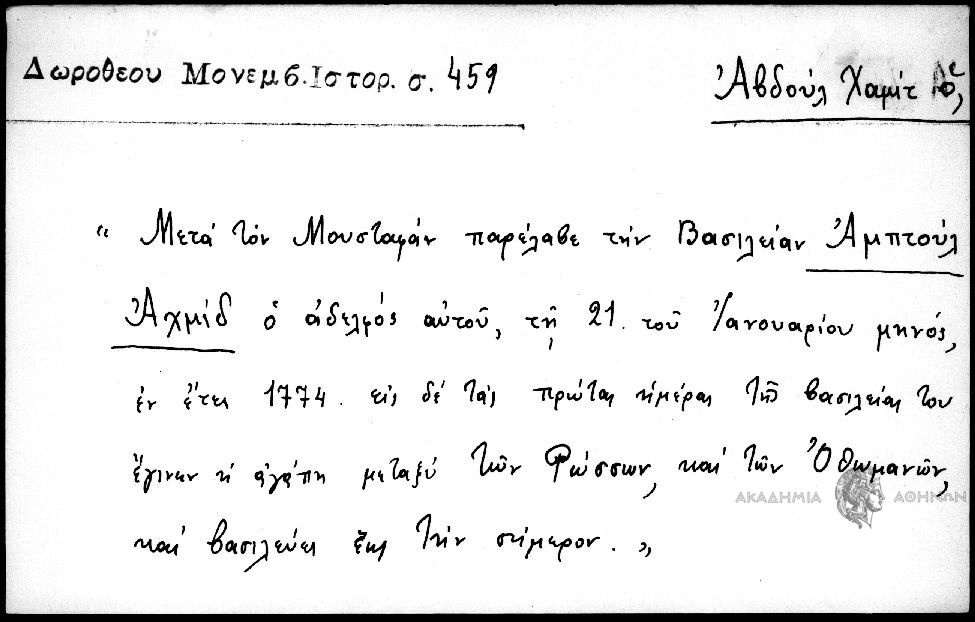 Δωροθεου Μονεμβ.Ιστορ. σ. 459
Ἀβδούλ Χαμίτ
“ Μετά τόν Μουσταφάν παρέλαβε τήν Βασιλείαν Ἀμπτούλ
Ἀχμίδ ὁ ἀδελφός αὐτοῦ, τῇ 21. τοῦ Ἰανουαρίου μηνός,
ἐν ἔτει 1774. εἰς δέ τάς πρώτας ἡμέρας τῆς βασιλείας του
ἔγινεν ἡ ἀγάπη μεταξύ τῶν Ρώσσων, καί τῶν Ὀθωμανῶν,
ΑΚΑΔΗΜΙΑ ΑΘΗΝΩΝ
καί βασιλεύει ἕως τήν σήμερον. „